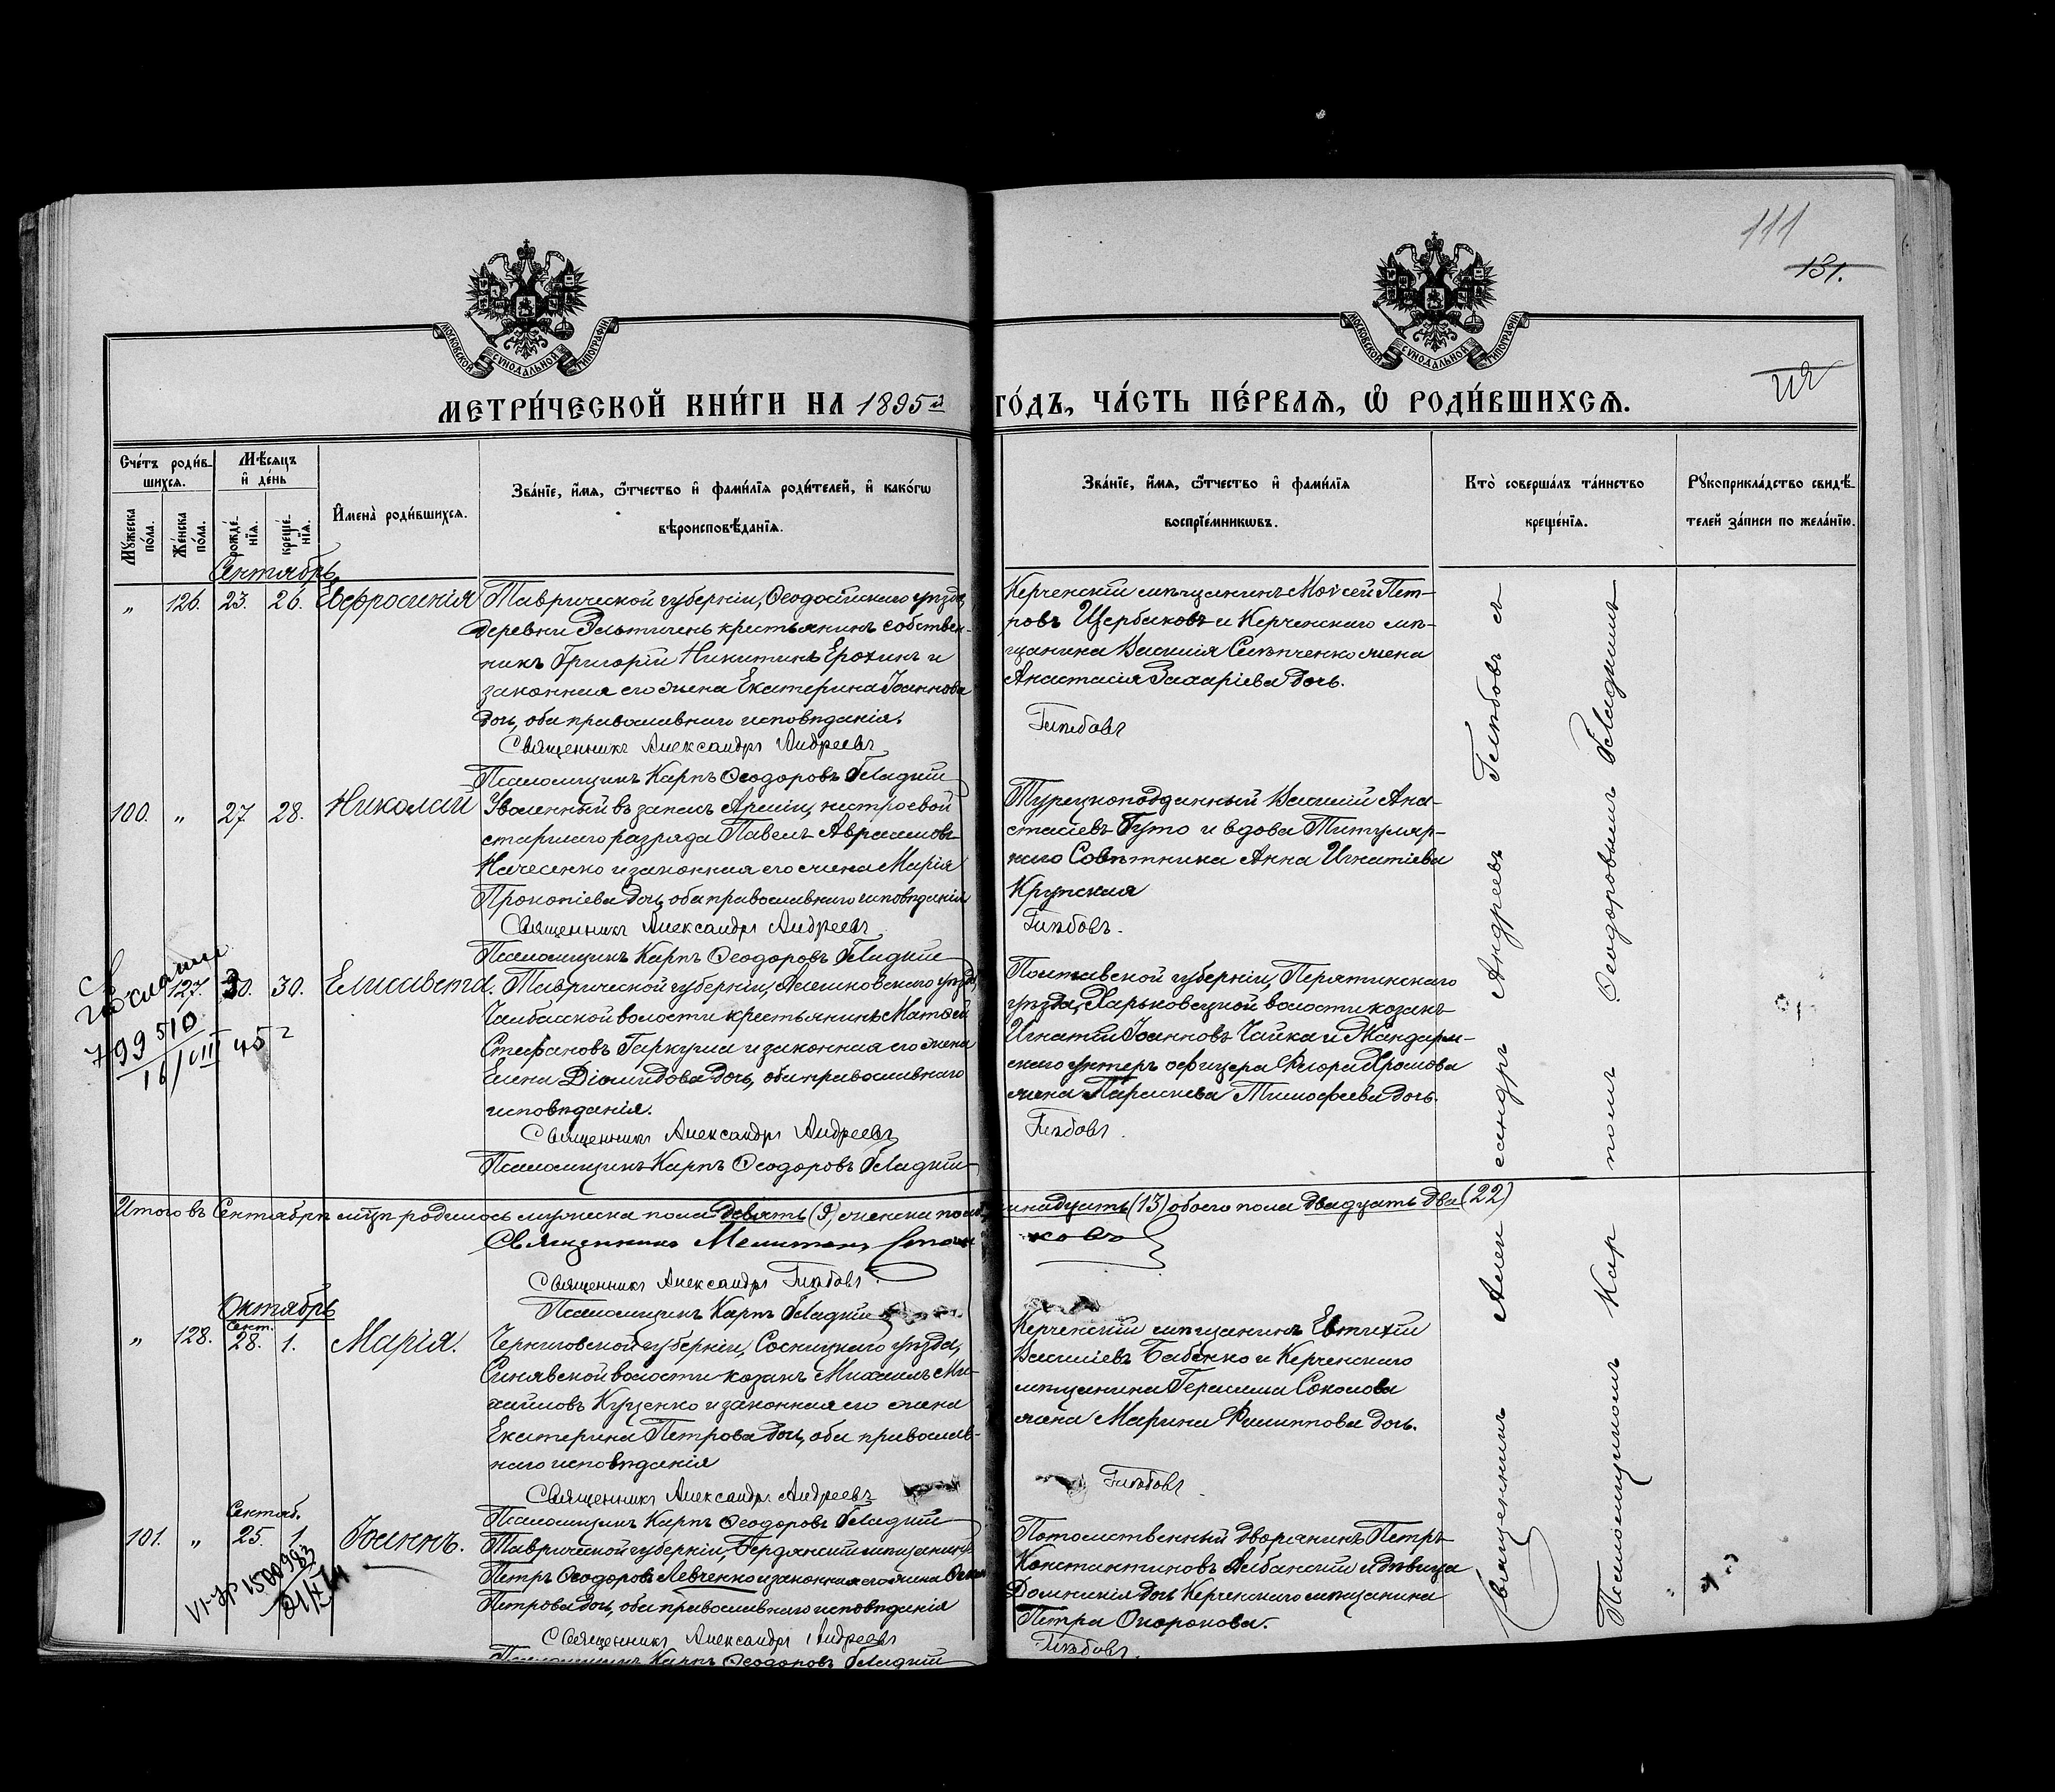 111
131.
МОСКОВСКОЙ СѴНОДАЛЬНОЙ ТИПОГРАФІИ
МОСКОВСКОЙ СѴНОДАЛЬНОЙ ТИПОГРАФІИ
МЕТРИ́ЧЕСКОЙ КНИ́ГИ НА 1895й ГО́ДЪ, ЧА́СТЬ ПЕ́РВАѦ, Ѡ҆ РОДИ́ВШИХСѦ.
Сче́тъ роди́в-
шихсѧ.
Мѣ́сѧцъ
и҆ де́нь
Мꙋ́жеска по́ла.
Же́нска по́ла.
рожде́-нїѧ.
креще́-нїѧ.
И҆мена̀ роди́вшихсѧ.
Зва́нїе, и҆́мѧ, ѻ҆́тчество и҆ фами́лїѧ роди́телей, и҆ како́гѡ
вѣроисповѣ́данїѧ.
Зва́нїе, и҆́мѧ, ѻ҆́тчество и҆ фами́лїѧ
воспрїе́мникѡвъ.
Кто̀ соверша́лъ та́инство
креще́нїѧ.
Рꙋкоприкла́дство свидѣ́-
телей за́писи по жела́нїю.
Сентябрь
„ 126. 23. 26. Евфросинія
Таврической губерніи, Ѳеодосійскаго уѣзда,
деревни Эльтигень крестьянинъ собствен-
никъ Григорій Никитинъ Ерохинъ и
законная его жена Екатерина Іоаннова
дочь, оба православнаго исповѣданія.
Священникъ Александръ Андреевъ
Псаломщикъ Карпъ Ѳеодоровъ Гладкій
Керченскій мѣщанинъ Моѵсей Пет-
ровъ Щербаковъ и Керченскаго мѣ-
щанина Василія Слѣпченко жена
Анастасія Захаріева дочь.
Глѣбовъ
100. „ 27. 28. Николай
Уволенный въ запасъ Арміи, нестроевой
старшаго разряда Павелъ Авраамовъ
Начесенко и законная его жена Марія
Прокопіева дочь, оба православнаго исповѣданія
Священникъ Александръ Андреевъ
Псаломщикъ Карпъ Ѳеодоровъ Гладкій
Турецкоподданный Василій Ана-
стасіевъ Гуто и вдова Титуляр-
наго Совѣтника Анна Игнатіева
Крупская
Глѣбовъ.
127. 30. 30. Елисавета.
Таврической губерніи, Мелитопольскаго уѣзда,
Чалбасской волости крестьянинъ Матѳей
Стефановъ Гаркуша и законная его жена
Елена Діомидова дочь, оба православнаго
исповѣданія.
Священникъ Александръ Андреевъ
Псаломщикъ Карпъ Ѳеодоровъ Гладкій
Полтавской губерніи, Пирятинскаго
уѣзда, Харьковецкой волости козакъ
Игнатій Іоанновъ Чайка и Жандарм-
скаго унтеръ офицера Флора Хромова
жена Параскева Тимофеева дочь.
Глѣбовъ.
Итого въ Сентябрѣ мѣсяцѣ родилось мужеска пола девять (9), женска пола тринадцать (13) обоего пола двадцать два (22)
Священникъ Мелитонъ
Священникъ Александръ Глѣбовъ.
Псаломщикъ Карпъ Гладкій
Октябрь
„ 128. Сент. 28. 1. Марія.
Черниговской губерніи, Сосницкаго уѣзда,
Синявской волости козакъ Михаилъ Ми-
хайловъ Куценко и законная его жена
Екатерина Петрова дочь, оба православ-
наго исповѣданія
Священникъ Александръ Андреевъ
Псаломщикъ Карпъ Ѳеодоровъ Гладкій
Керченскій мѣщанинъ Евтихій
Василіевъ Бабенко и Керченскаго
мѣщанина Герасима Соколова
жена Марина Филиппова дочь.
Глѣбовъ
101. „ Сентяб. 25. 1. Іоаннъ.
Таврической губерніи, Бердянскій мѣщанинъ
Петръ Ѳеодоровъ Левченко и законная его жена
Петрова дочь, оба православнаго исповѣданія
Священникъ Александръ Андреевъ
Псаломщикъ Карпъ Ѳеодоровъ Гладкій
Потомственный дворянинъ Петръ
Константиновъ Албанскій и дѣвица
Домникія дочь Керченскаго мѣщанина
Петра Охоронова.
Глѣбовъ.
Священникъ Александръ Андреевъ Глѣбовъ съ
Псаломщикомъ Карпомъ Ѳеодоровымъ Гладкимъ